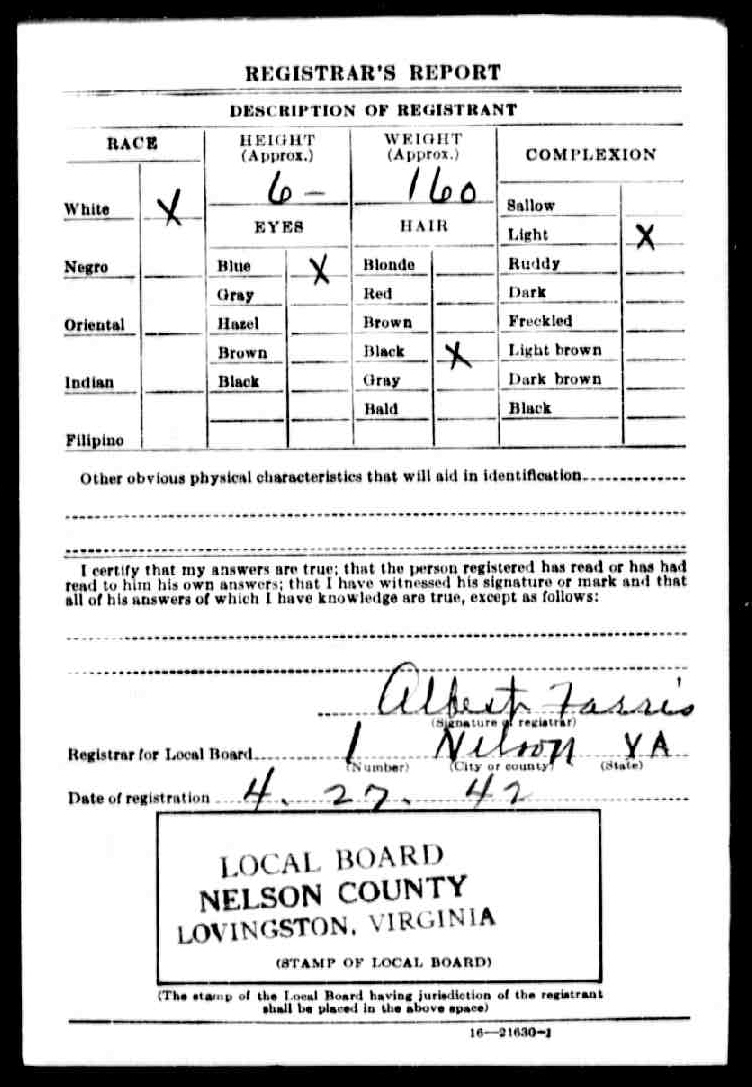 REGISTRAR'S REPORT
DESCRIPTION OF REGISTRANT
RACE
HEIGHT
(Approx.)
WEIGHT
(Approx.)
COMPLEXION
6 –
160
White X
Sallow
EYES
HAIR
Light X
Negro
Blue X
Blonde
Ruddy
Gray
Red
Dark
Oriental
Hazel
Brown
Freckled
Brown
Black X
Light brown
Indian
Black
Gray
Dark brown
Bald
Black
Filipino
Other obvious physical characteristics that will aid in identification
I certify that my answers are true; that the person registered has read or has had
read to him his own answers; that I have witnessed his signature or mark and that
all of his answers of which I have knowledge are true, except as follows:
Albert Farris
(Signature of registrar)
Registrar for Local Board 1 Nelson VA
(Number) (City or county) (State)
Date of registration 4. 27. 42
LOCAL BOARD
NELSON COUNTY
LOVINGSTON, VIRGINIA
(STAMP OF LOCAL BOARD)
(The stamp of the Local Board having jurisdiction of the registrant
shall be placed in the above space)
16—21630-1